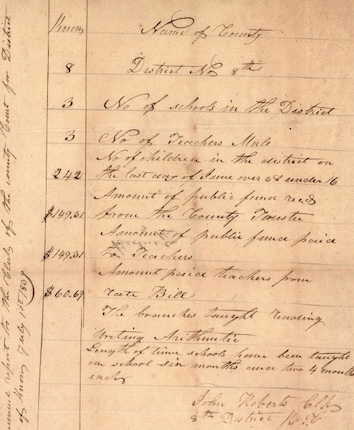 Knox Name of County
8 District No 8th
3 No of schools in the District
3 No of Teachers Male
No of children in the district on
242 the last day of June over 6 & under 16
Amount of public fund recd
$149.31 from the County Trustee
Amount of public fund paid
$149.31 to Teachers
Amount paid teachers from
$60.69 rate Bill
The branches taught reading
Writing Arithmetic
Length of time schools have been taught
one school six months and two 4 months
each
John Roberts
8th District K. C
report to the Clerk of the county Court for District
of Knox July 1st 1839